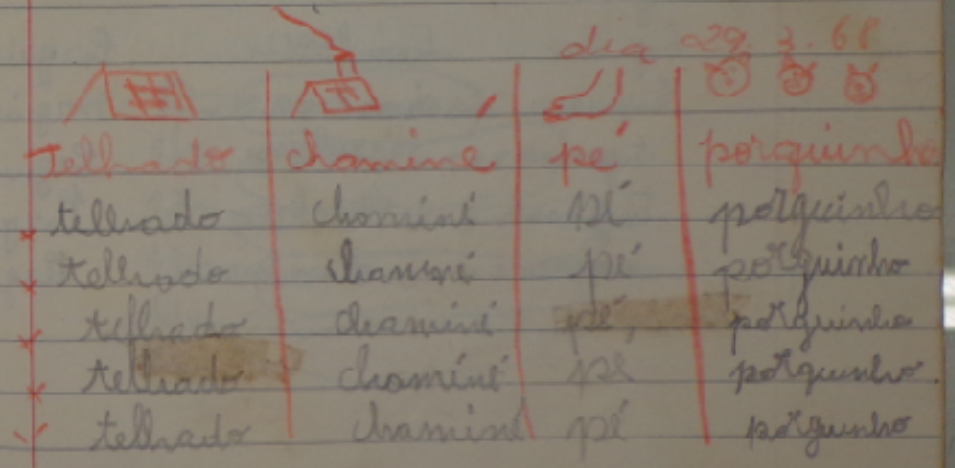 dia 29. 3. 68
telhado chaminé pé porquinho
telhado chaminé pé porquinho
telhado chaminé pé porquinho
telhado chaminé pé, porquinho
telhado chaminé pé porquinho.
telhado chaminé pé porquinho